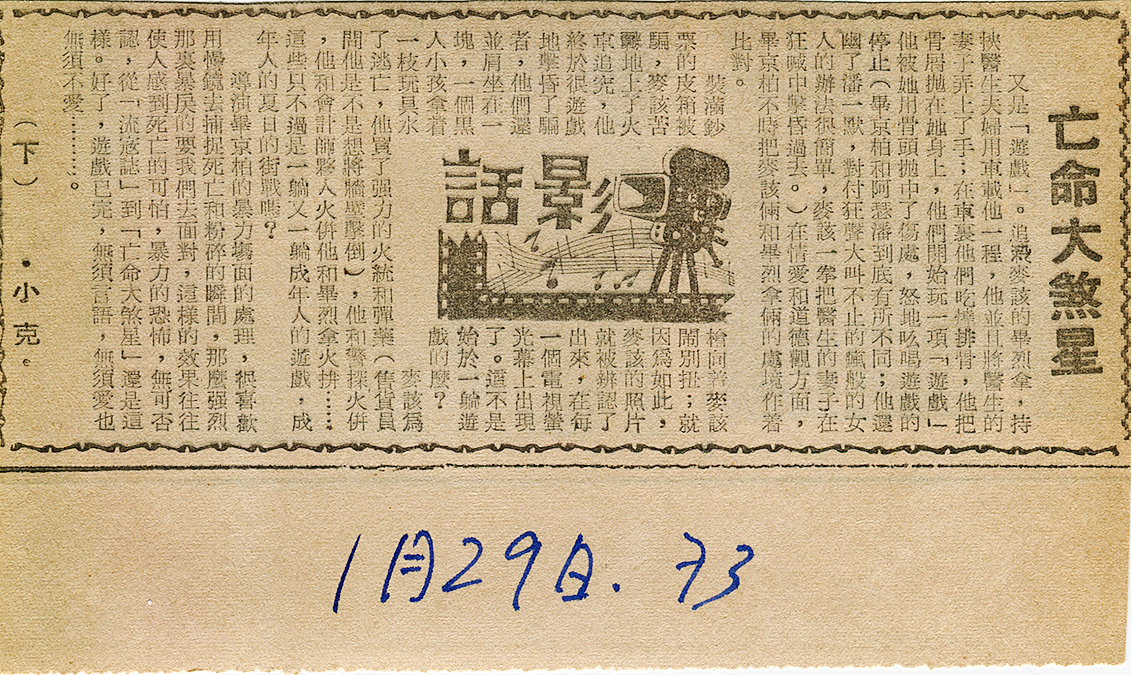 亡命大煞星
又是「遊戲」。追殺麥該的畢烈拿,持
挾醫生夫婦用車載他一程,他並且將醫生的
妻子弄上了手;在車裏他們吃燒排骨,他把
骨屑拋在她身上,他們開始玩一項「遊戲」
他被她用骨頭拋中了傷處,怒地吆喝遊戲的
停止(畢京柏和阿瑟潘到底有所不同;他還
幽了潘一默,對付狂聲大叫不止的瘋般的女
人的辦法很簡單,麥該一拳把醫生的妻子在
狂喊中擊昏過去。)在情愛和道德觀方面,
畢京柏不時把麥該倆和畢烈拿倆的處境作着
比對。
影話
裝滿鈔
票的皮箱被
騙,麥該苦
地上了火
車追究,他
終於很遊戲
地擊昏了騙
者,他們還
並肩坐在一
塊,一個黑
人小孩拿着
一枝玩具水
槍向着麥該
鬧別扭;就
因爲如此,
麥該的照片
就被辨認了
出來,在每
一個電視螢
光幕上出現
了。這不是
始於一躺遊
戲的麼?
麥該爲
了逃亡,他買了强力的火銃和彈藥(售貨員
問他是不是想將牆壁擊倒),他和警探火併
,他和會計師夥人火併他和畢烈拿火拚……
這些只不過是一躺又一躺成年人的遊戲,成
年人的夏日的街戰嗎?
導演畢京柏的暴力塲面的處理,很喜歡
用慢鏡去捕捉死亡和粉碎的瞬間,那麼强烈
那裏暴戾的要我們去面對,這樣的效果往往
使人感到死亡的可怕,暴力的恐怖,無可否
認,從「流寇誌」到「亡命大煞星」還是這
樣。好了,遊戲已完,無須言語,無須愛也
無須不愛………。
(下)•小克。
1月29日.73